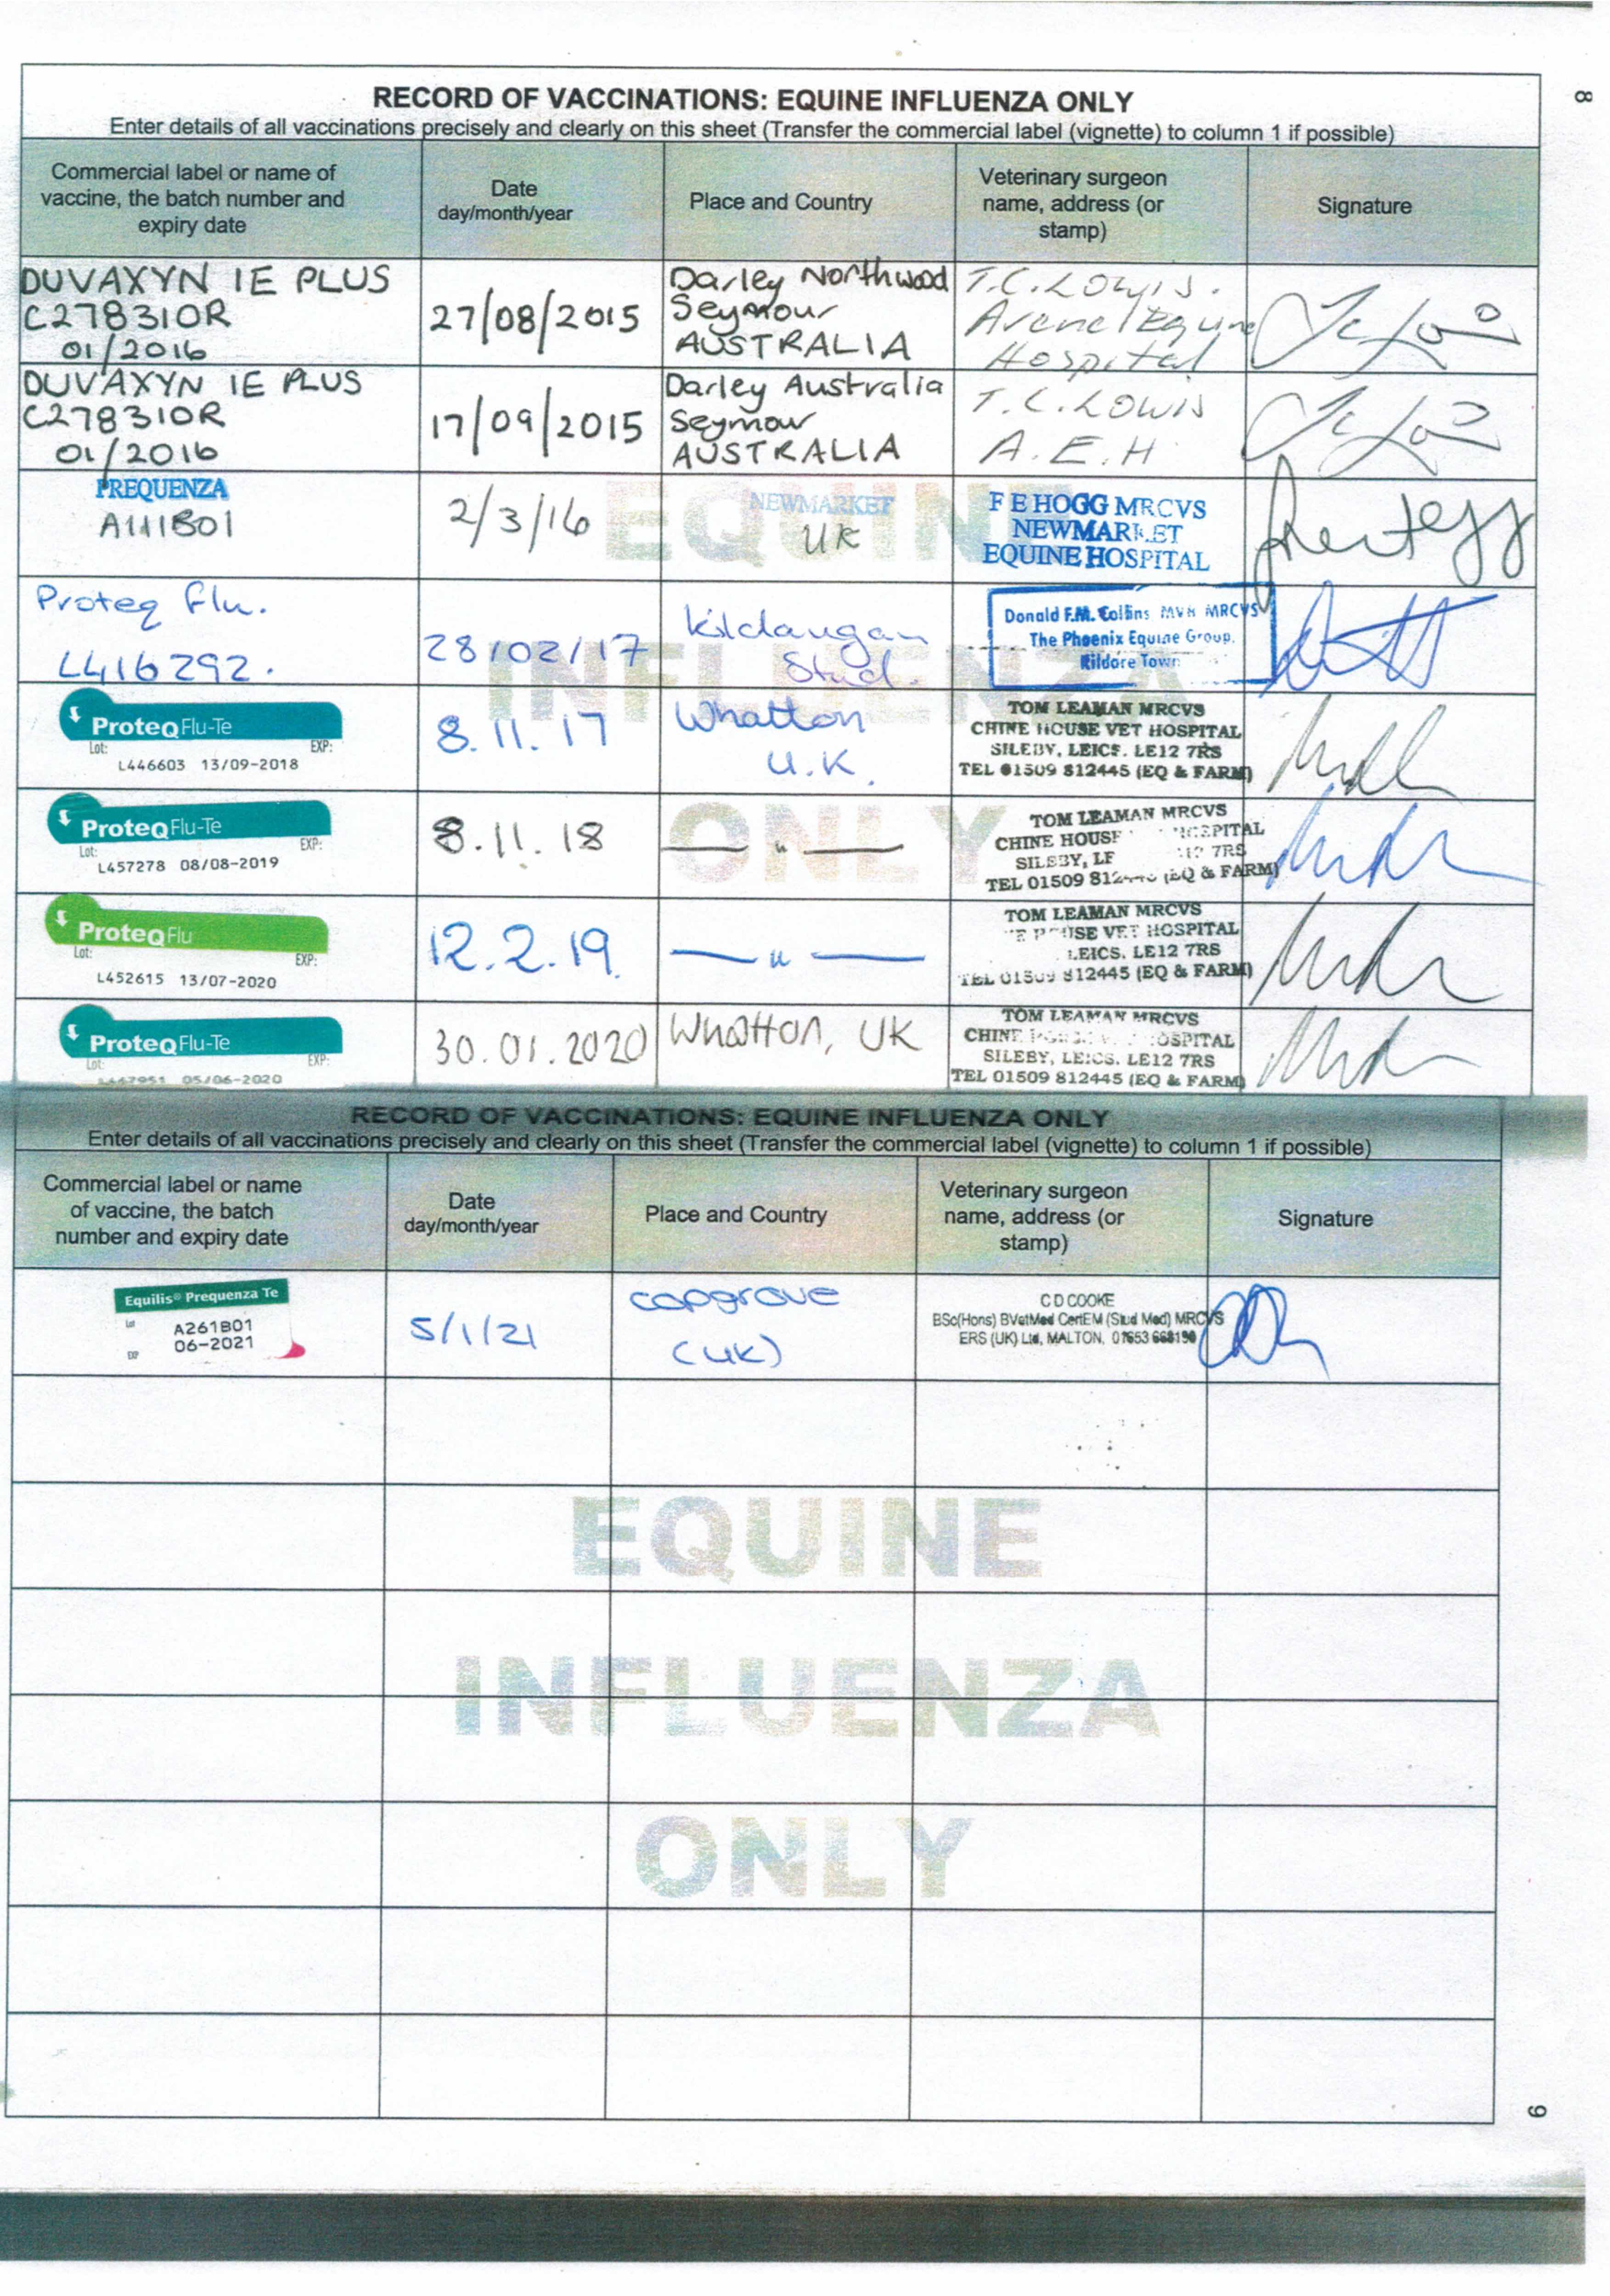 8
RECORD OF VACCINATIONS: EQUINE INFLUENZA ONLY
Enter details of all vaccinations precisely and clearly on this sheet (Transfer the commercial label (vignette) to column 1 if possible)
Commercial label or name of
vaccine, the batch number and
expiry date
Date
day/month/year
Place and Country
Veterinary surgeon
name, address (or
stamp)
Signature
DUVAXYN IE PLUS
C278310R
01/2016
27/08/2015
Darley Northwood
Seymour
AUSTRALIA
T.C. LOWIS.
Avenel Equine
Hospital
DUVAXYN IE PLUS
C278310R
01/2016
17/09/2015
Darley Australia
Seymour
AUSTRALIA
T.C. LOWIS
A.E.H
PREQUENZA
A111B01
2/3/16
NEWMARKET
UK
F E HOGG MRCVS
NEWMARKET
EQUINE HOSPITAL
Proteq Flu.
L416292.
28/02/17
Kildangan
Stud.
Donald F.M. Collins MVB MRCVS
The Phoenix Equine Group.
Kildare Town
ProteqFlu-Te
Lot: EXP:
L446603 13/09-2018
8.11.17
Whatton
U.K.
TOM LEAMAN MRCVS
CHINE HOUSE VET HOSPITAL
SILEBY, LEICS. LE12 7RS
TEL 01509 812445 (EQ & FARM)
ProteqFlu-Te
Lot: EXP:
L457278 08/08-2019
8.11.18
— " —
TOM LEAMAN MRCVS
CHINE HOUSE HOSPITAL
SILEBY, LE 7RS
TEL 01509 812445 (EQ & FARM)
ProteqFlu
Lot: EXP:
L452615 13/07-2020
12.2.19.
— " —
TOM LEAMAN MRCVS
HOUSE VET HOSPITAL
LEICS. LE12 7RS
TEL 01509 812445 (EQ & FARM)
ProteqFlu-Te
Lot: EXP:
05/06-2020
30.01.2020
Whatton, UK
TOM LEAMAN MRCVS
CHINE HOSPITAL
SILEBY, LEICS. LE12 7RS
TEL 01509 812445 (EQ & FARM)
EQUINE
INFLUENZA
ONLY
RECORD OF VACCINATIONS: EQUINE INFLUENZA ONLY
Enter details of all vaccinations precisely and clearly on this sheet (Transfer the commercial label (vignette) to column 1 if possible)
Commercial label or name
of vaccine, the batch
number and expiry date
Date
day/month/year
Place and Country
Veterinary surgeon
name, address (or
stamp)
Signature
Equilis® Prequenza Te
Lot A261B01
EXP 06-2021
5/1/21
copgrove
(UK)
C D COOKE
BSc(Hons) BVetMed CertEM (Stud Med) MRCVS
ERS (UK) Ltd, MALTON, 01653 668190
EQUINE
INFLUENZA
ONLY
9